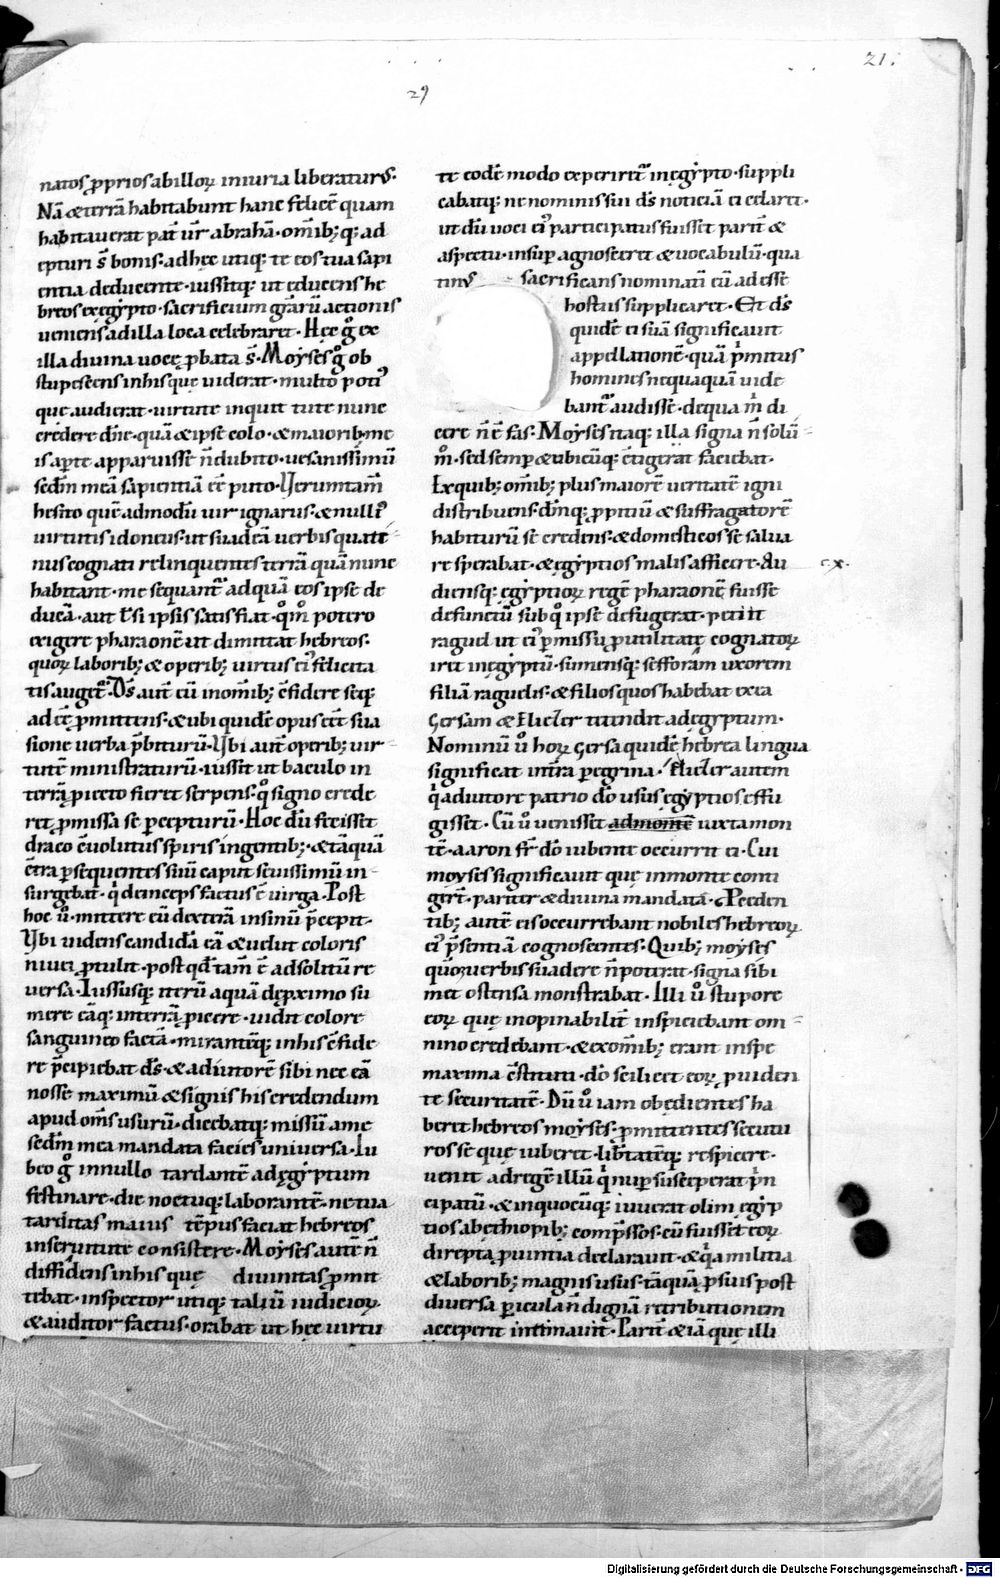 21.
29
natos ꝓprios ab illoꝝ iniuria liberaturus·
Nā & terrā habitabunt hanc felicē quam
habitauerat pat̄ ur̄ abrahā· om̄ib; q; ad
epturi s̄ bonis· ad hęc utiq; te eos tua sapi
entia deducente· iussitq; ut educens he
breos ex egypto· sacrificium gr̄arū actionis
ueniens ad illa loca celebraret· Hęc gͦ ex
illa diuina uocę ꝓbata s̄· Moyses gͦ ob
stupescens in his quę uiderat· multo poti᾽
quę audierat· uirtute inquit tute nunc
credere dn̄e· quā & ipse colo· & maiorib; me
is aꝑte apparuisse n̄ dubito· uesanissimū
sed̄m meā sapientiā eē puto· Verumtam̄
hesito quē admodū uir ignarus· & nulli᾽
uirtutis idoneus· ut suadeā uerbis quati
nus cognati relinquentes terrā quā nunc
habitant· me sequant᷑ ad quā eos ipse de
ducā· aut & si ipsis satis fiat· qͦm̄ potero
exigere pharaonē ut dimittat hebreos·
quoꝝ laborib; & operib; uirtus ei᾽ felicita
tis auget᷑· Ds̄ aut̄ eū in om̄ib; c̄fidere seq;
ad eē ꝓmittens· & ubi quidē opus eēt sua
sione uerba p̄biturū· Vbi aut̄ operib; uir
tutē ministraturū· iussit ut baculo in
terrā ꝓiecto fieret serpens· qͦ signo crede
ret ꝓmissa se ꝑcepturū· Hoc dū fecisset
draco c̄uolutus spiris ingentib; & tāquā
c̄tra ꝑsequentes suū caput seuissimū in
surgebat· qͥ deinceps factus ē uirga· Post
hoc uͦ· mittere eū dexterā in sinū p̄cepit·
Vbi uidens candidā eā & uelut coloris
niuei ꝓtulit· post qd̄ tam̄ ē ad solitū re
uersa· Iussusq; iterū aquā de ꝓximo su
mere eāq; in terrā ꝓicere· uidit colore
sanguineo factā· mirantēq; in his c̄fide
re p̄cipiebat ds̄· & adiutorē sibi nec eā
nosse maximū & signis his credendum
apud om̄s usurū· dicebatq; missū a me
sed̄m mea mandata facies uniuersa· Iu
beo gͦ in nullo tardantē ad egyptum
festinare· die noctuq; laborantē· ne tua
tarditas maius tēpus faciat hebreos
in seruitute consistere· Moyses autē n̄
diffidens in his quę diuinitas ꝓmit
tebat· inspector utiq; taliū iudicioꝝ
& auditor factus· orabat ut hęc uirtu
te eodē modo experiret᷑ in egypto· suppli
cabatq; ne nominis sui ds̄ noticiā ei celaret·
ut dū uoci ei᾽ participatus fuisset parit̄ &
aspectu· insuꝑ agnosceret & uocabulū· qua
tin᾽ sacrificans nominati eū ad esse
hostiis supplicaret· Et ds̄
quidē ei suā significauit
appellationē· quā p̄mitus
homines nequaquā uide
bant᷑ audisse· de qua m̄ di
cere n̄ ē fas· Moyses itaq; illa signa n̄ solū
m̄· sed semꝑ & ubicūq; c̄tigerat faciebat·
Ex quib; om̄ib; plus maiorē ueritatē igni
distribuens· dm̄q; ꝓpitiū & suffragatorē
habiturū se credens· & domesticos se salua
re sperabat· & egyptios malis afficere· Au
c̣x.
diensq; egyptioꝝ regē pharaonē fuisse
defunctū sub qͦ ipse defugerat· petiit
raguel ut ei᾽ ꝑmissu ꝓ utilitatę cognatoꝝ
iret in egyptū· sumensq; sefforam uxorem
filiā raguelis· & filios quos habebat ex ea
Gersam & Eliezer tetendit ad egyptum·
Nominū uͦ hoꝝ Gersa quidē hebrea lingua
significat in terra ꝑegrina· Eliezer autem
qͥ adiutore patrio dō usus egyptios effu
gisset· Cū uͦ uenisset admontē iuxta mon
tē· aaron fr̄ dō iubente occurrit ei· Cui
moyses significauit quę in monte conti
ger̄t· pariter & diuina mandata· Peeden
tib; autē eis occurrebant nobiles hebreoꝝ
ei᾽ p̄sentiā cognoscentes· Quib; moyses
quō uerbis suadere n̄ poterat· signa sibi
met ostensa monstrabat· Illi uͦ stupore
eoꝝ quę inopinabilit̄ inspiciebant om
nino credebant· & ex om̄ib; erant in spe
maxima c̄stituti· dō scilicet eoꝝ ꝓuiden
te securitatē· Dū uͦ iam obędientes ha
beret hebreos moyses· ꝓmittentes secutu
ros se quę iuberet· lib̄tatēq; respicere·
uenit ad regē illū qͥ nuꝑ susceperat p̄n
cipatū· & in quocūq; iuuerat olim egyp
tios ab ęthiopib; comp̄ssos· cū fuisset eoꝝ
direpta ꝓuintia declarauit· & qͥa militia
& laborib; magnis usus· tāquā ꝓ suis post
diuersa ꝑicula n̄ dignā retributionem
acceperit intimauit· Parit̄ & iā quę illi
Digitalisierung gefördert durch die Deutsche Forschungsgemeinschaft - DFG